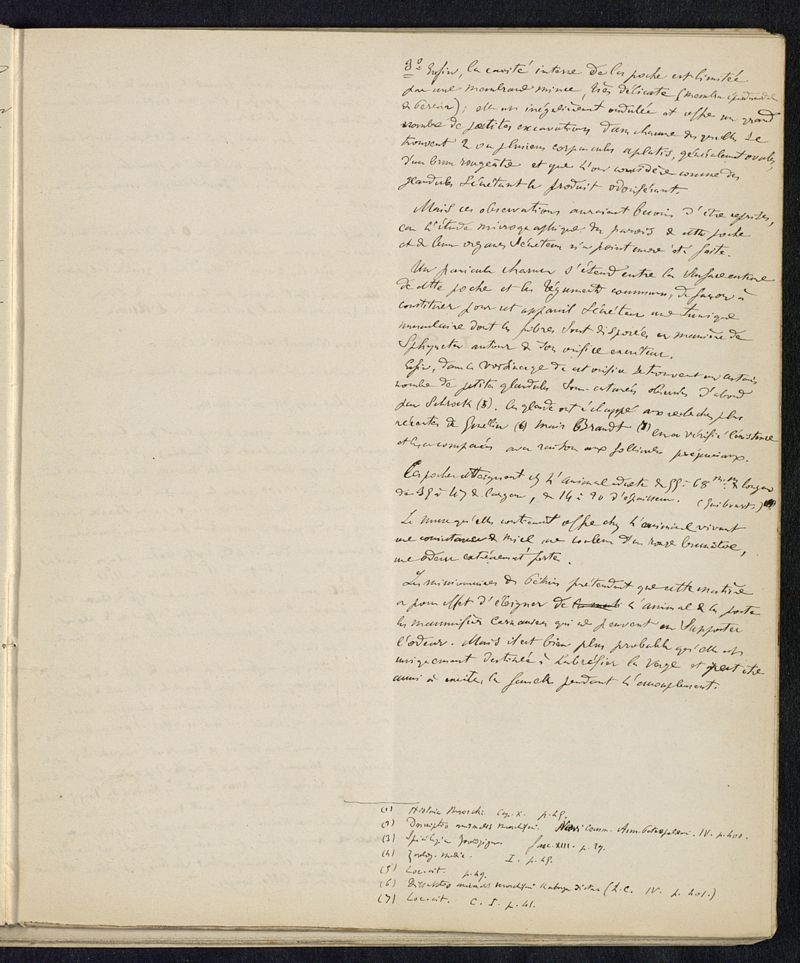 3º Enfin, la cavité interne de la poche est limitée
par une membrane mince, très délicate (membr. épidermale
de Pereira); elle est irrégulièrement ondulée et offre un grand
nombre de petites excavations dans chacune desquelles se
trouvent 2 ou plusieurs corpuscules aplatis, généralement ovales,
d'un brun rougeâtre et que l'on considère comme des
glandules sécrétant le produit odoriférant.
Mais ces observations auraient besoin d'être reprises,
car l'étude micrographique des parois de cette poche
et de leurs organes sécréteurs n'a point encore été faite.
Un panicule charnu s'étend entre la surface entière
de cette poche et les téguments communs, de façon à
constituer pour cet appareil sécréteur une tunique
musculaire dont les fibres sont disposées en manière de
Sphyncter autour de son orifice excréteur.
Enfin, dans le voisinage de cet orifice se trouvent un certain
nombre de petites glandules observées d'abord
par Schrock (5). Ces glandes ont échappé aux recherches plus
récentes de Gmelin (6) mais Brandt (7) en a vérifié l'existence
et les a comparées avec raison aux follicules préputiaux.
Ces poches atteignent chez l'animal adulte de 55 à 68 m.m de longueur
de 35 à 47 de largeur, de 14 à 20 d'épaisseur. (Guibourt)
Le musc qu'elles contiennent offre chez l'animal vivant
une consistance de miel, une couleur d'un rouge brunâtre,
une odeur extrêmement forte.
Les missionnaires de Pékin prétendent que cette matière
a pour effet d'éloigner de l'animal qui la porte
les mammifères carnassiers qui ne peuvent en supporter
l'odeur. Mais il est bien plus probable qu'elle est
uniquement destinée à lubréfier la verge et peut-être
aussi à exciter la femelle pendant l'accouplement.
(1) Historia Moschi Cap. X. p. 48.
(2) Descriptio animalis moschiferi. Novi Comm. Acad. Petropolitan. IV. p. 401.
(3) Spicilegia Zoologica fasc. XIII. p. 29.
(4) Zoolog. médic. I. p. 48.
(5) Loc. cit. p. 49.
(6) Descriptio animalis moschiferi (L.C. IV. p. 401.)
(7) Loc. cit. C. I. p. 41.